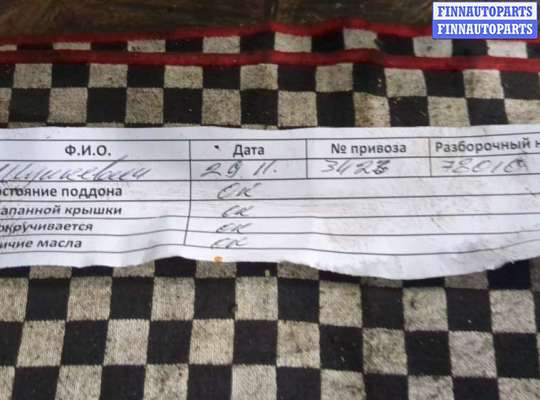 FINNAUTOPARTS
FINNAUTOPARTS
Ф.И.О. Дата № привоза Разборочный н
29 11. 3423 78010
стояние поддона ок
апанной крышки ок
окручивается ок
ичие масла ок